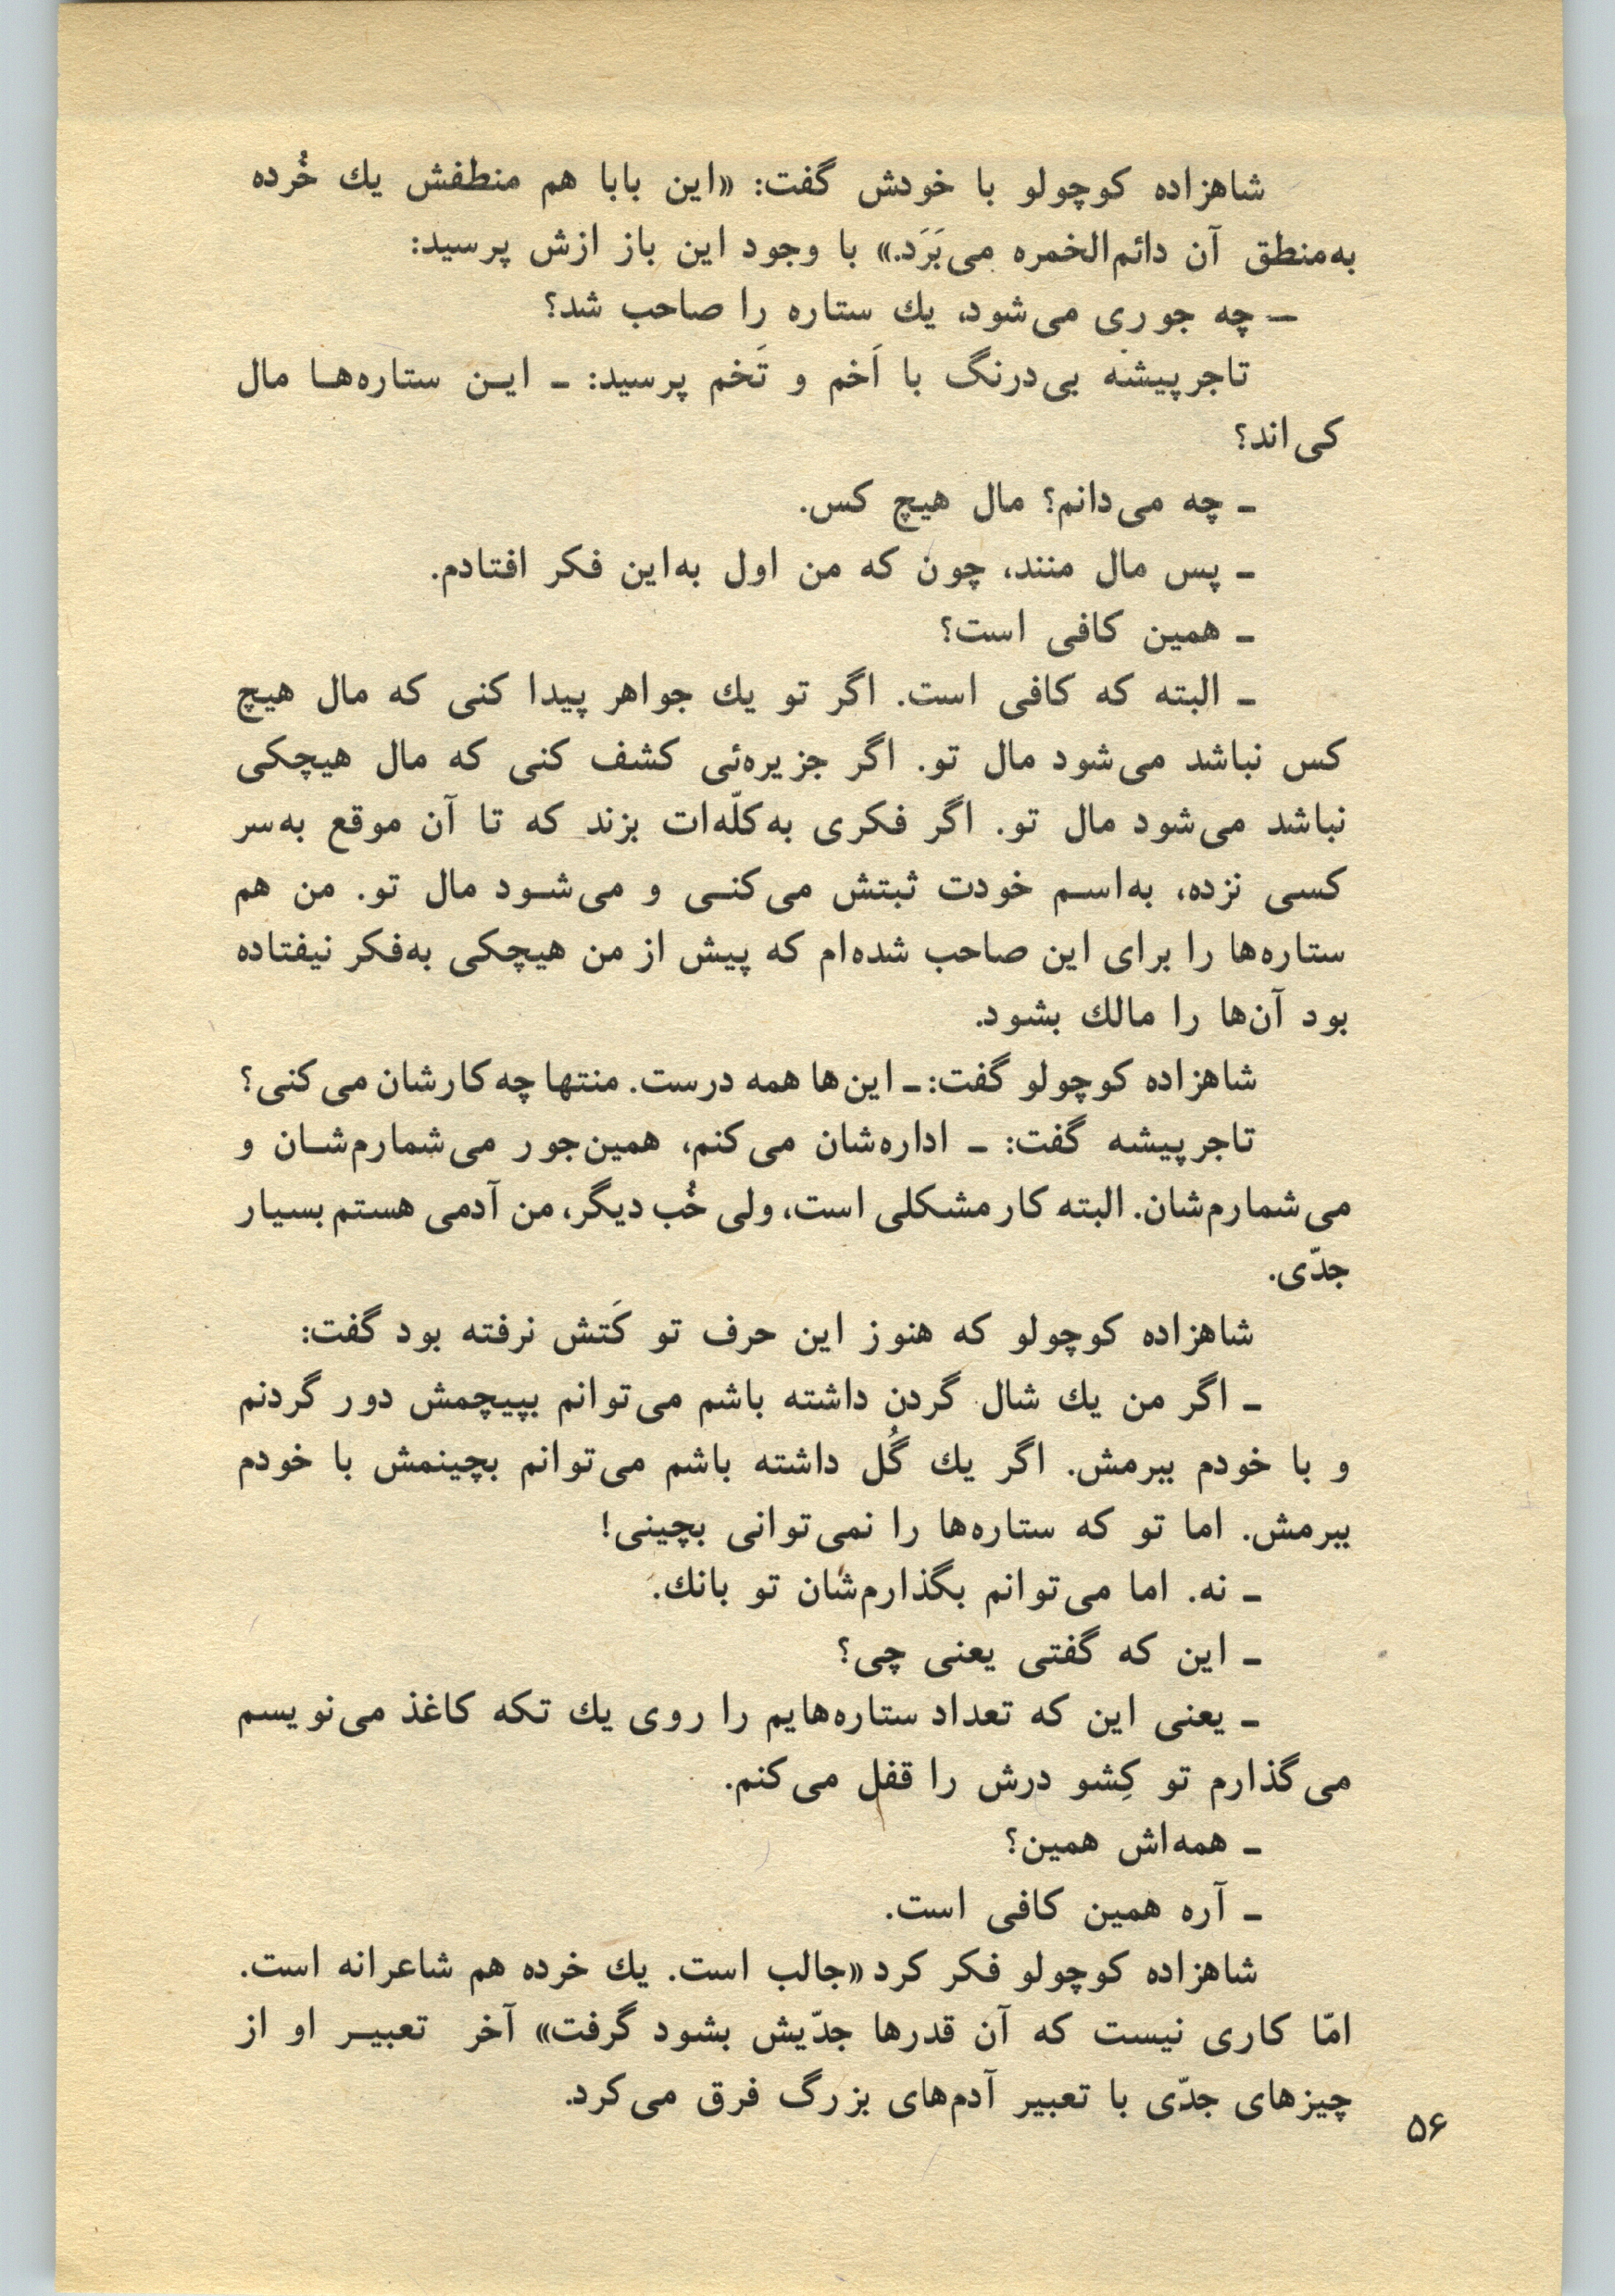 شاهزاده کوچولو با خودش گفت: «این بابا هم منطقش یك خُرده
به‌منطق آن دائم‌الخمره می‌بَرَد.» با وجود این باز ازش پرسید:
– چه جوری می‌شود، یك ستاره را صاحب شد؟
تاجرپیشه بی‌درنگ با اَخم و تَخم پرسید: ـ ایـن ستاره‌هـا مال
کی‌اند؟
ـ چه می‌دانم؟ مال هیچ کس.
ـ پس مال منند، چون که من اول به‌این فکر افتادم.
ـ همین کافی است؟
ـ البته که کافی است. اگر تو یك جواهر پیدا کنی که مال هیچ
کس نباشد می‌شود مال تو. اگر جزیره‌ئی کشف کنی که مال هیچکی
نباشد می‌شود مال تو. اگر فکری به‌کلّه‌ات بزند که تا آن موقع به‌سر
کسی نزده، به‌اسـم خودت ثبتش می‌کنـی و می‌شـود مال تو. من هم
ستاره‌ها را برای این صاحب شده‌ام که پیش از من هیچکی به‌فکر نیفتاده
بود آن‌ها را مالك بشود.
شاهزاده کوچولو گفت: ـ این‌ها همه درست. منتها چه کارشان می‌کنی؟
تاجرپیشه گفت: ـ اداره‌شان می‌کنم، همین‌جور می‌شمارم‌شـان و
می‌شمارم‌شان. البته کار مشکلی است، ولی خُب دیگر، من آدمی هستم بسیار
جدّی.
شاهزاده کوچولو که هنوز این حرف تو کَتش نرفته بود گفت:
ـ اگر من یك شال گردن داشته باشم می‌توانم بپیچمش دور گردنم
و با خودم ببرمش. اگر یك گُل داشته باشم می‌توانم بچینمش با خودم
ببرمش. اما تو که ستاره‌ها را نمی‌توانی بچینی!
ـ نه. اما می‌توانم بگذارم‌شان تو بانك.
ـ این که گفتی یعنی چی؟
ـ یعنی این که تعداد ستاره‌هایم را روی یك تکه کاغذ می‌نویسم
می‌گذارم تو کِشو درش را قفل می‌کنم.
ـ همه‌اش همین؟
ـ آره همین کافی است.
شاهزاده کوچولو فکر کرد «جالب است. یك خرده هم شاعرانه است.
امّا کاری نیست که آن قدرها جدّیش بشود گرفت» آخر تعبیـر او از
چیزهای جدّی با تعبیر آدم‌های بزرگ فرق می‌کرد.
۵۶